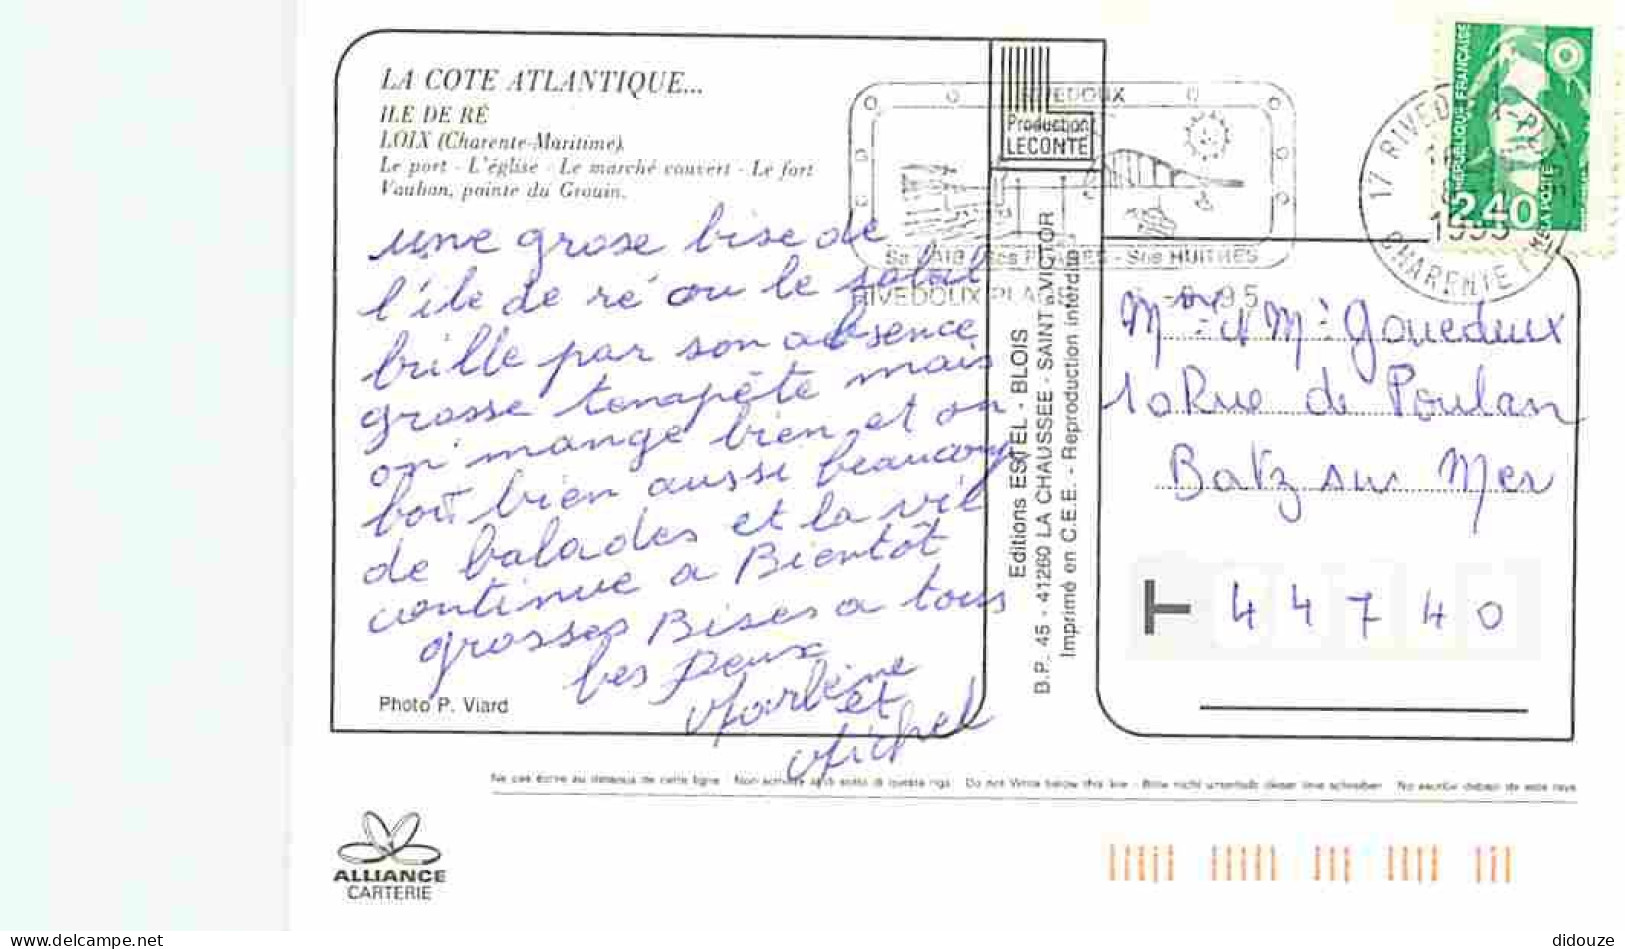 LA COTE ATLANTIQUE...
ILE DE RÉ
LOIX (Charente-Maritime).
Le port - L'église - Le marché couvert - Le fort
Vauban, pointe du Grouin.
une grose bise de
l'ile de ré ou le solal
brille par son absence
grosse tempête mais
on mange bien et on
boit bien aussi beaucoup
de balades et la vil
continue a Bientôt
grosses Bises a tous
les Deux
Marlène
et
Michel
Photo P. Viard
Production
LECONTE
Editions ESTEL - BLOIS
B.P. 45 - 41260 LA CHAUSSÉE - SAINT-VICTOR
Imprimé en C.E.E. - Reproduction interdite
RIVEDOUX
Sa - Ses - Ses HUITRES
RIVEDOUX PLAGE
17 RIVEDOUX-PLAGE
1995
CHARENTE
REPUBLIQUE FRANÇAISE
2,40
LA POSTE
Mme et Mr Gouedeux
10 Rue de Poulan
Batz sur Mer
44740
Ne pas écrire au dessous de cette ligne Non scrivere al di sotto di questa riga Do not Write below this line - Bitte nicht unterhalb dieser linie schreiben No escribir debajo de esta raya
ALLIANCE
CARTERIE
www.delcampe.net
didouze